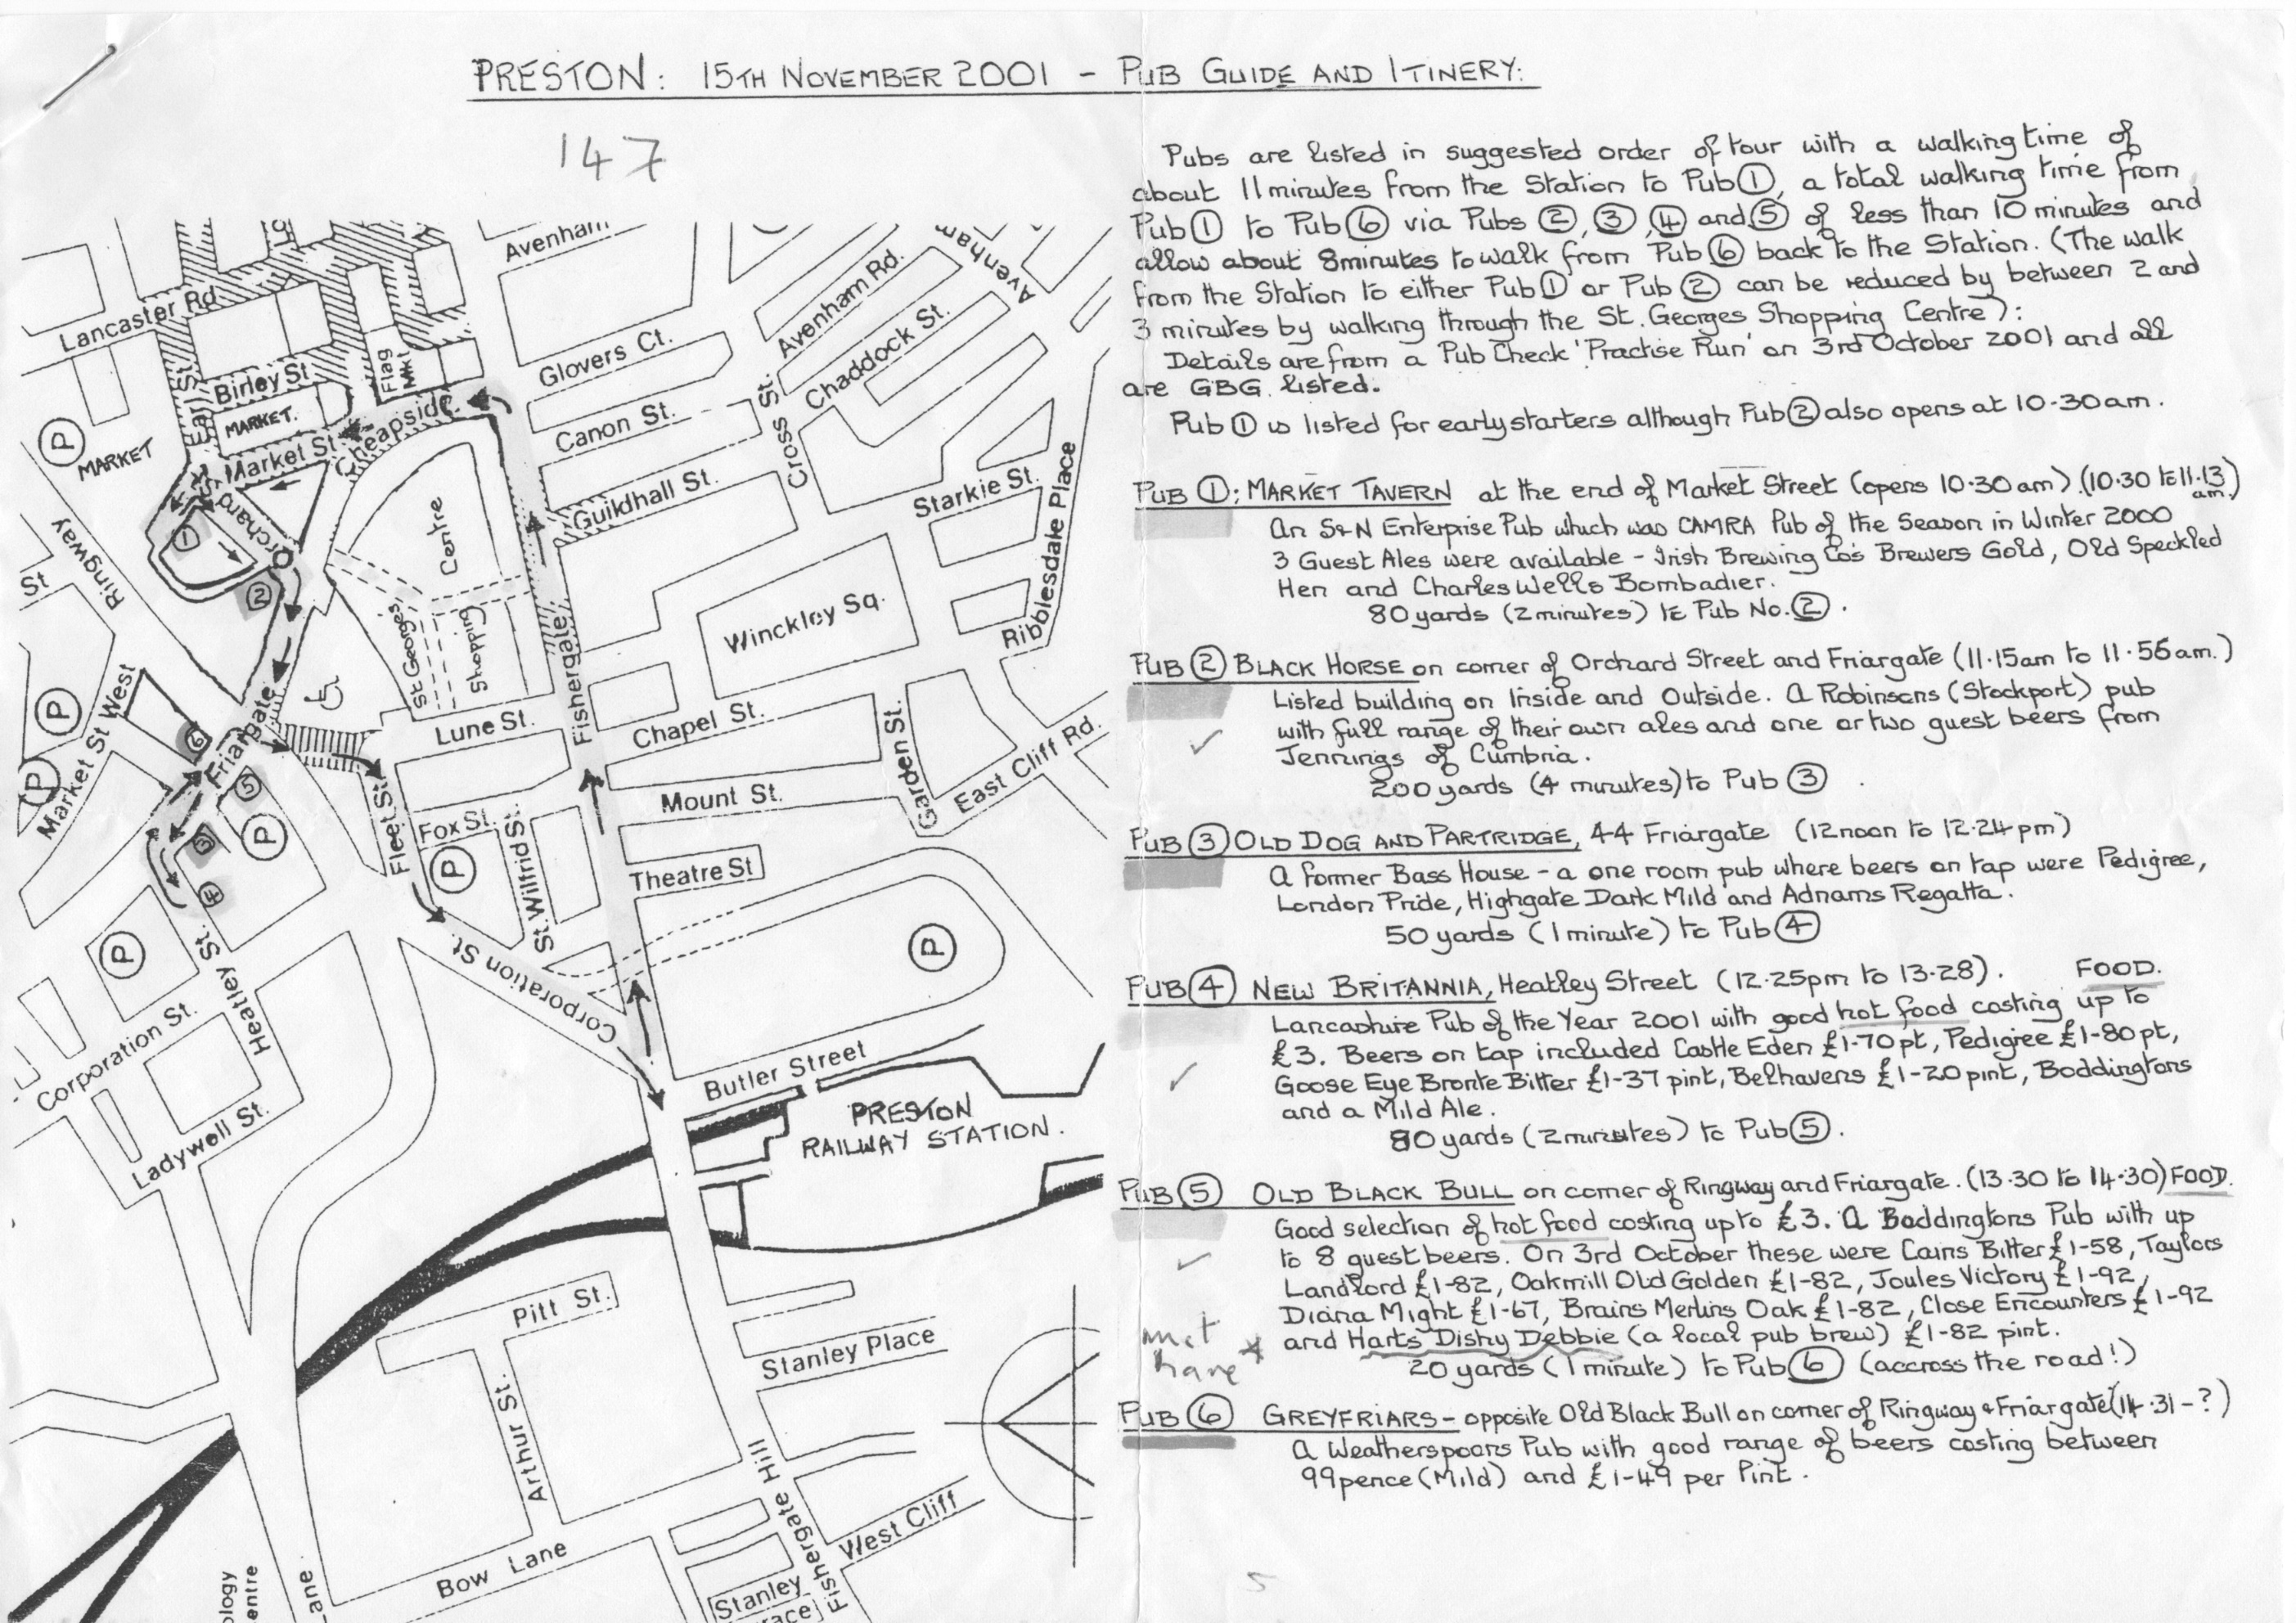 PRESTON: 15TH NOVEMBER 2001 - PUB GUIDE AND ITINERY:
147
Pubs are listed in suggested order of tour with a walking time of
about 11 minutes from the Station to Pub ①, a total walking time from
Pub ① to Pub ⑥ via Pubs ②, ③, ④ and ⑤ of less than 10 minutes and
allow about 8 minutes to walk from Pub ⑥ back to the Station. (The walk
from the Station to either Pub ① or Pub ② can be reduced by between 2 and
3 minutes by walking through the St. Georges Shopping Centre):
Details are from a Pub Check 'Practise Run' on 3rd October 2001 and all
are GBG listed.
Pub ① is listed for early starters although Pub ② also opens at 10-30am.
PUB ①: MARKET TAVERN at the end of Market Street (opens 10-30am). (10-30 to 11-13 am.)
An S&N Enterprise Pub which was CAMRA Pub of the Season in Winter 2000
3 Guest Ales were available - Irish Brewing Co's Brewers Gold, Old Speckled
Hen and Charles Wells Bombadier.
80 yards (2 minutes) to Pub No. ②.
PUB ② BLACK HORSE on corner of Orchard Street and Friargate (11-15am to 11-56am.)
Listed building on Inside and Outside. A Robinsons (Stockport) pub
with full range of their own ales and one or two guest beers from
Jennings of Cumbria.
200 yards (4 minutes) to Pub ③.
PUB ③ OLD DOG AND PARTRIDGE, 44 Friargate (12 noon to 12-24pm)
A former Bass House - a one room pub where beers on tap were Pedigree,
London Pride, Highgate Dark Mild and Adnams Regatta.
50 yards (1 minute) to Pub ④
PUB ④ NEW BRITANNIA, Heatley Street (12-25pm to 13-28). FOOD.
Lancashire Pub of the Year 2001 with good hot food costing up to
£3. Beers on tap included Castle Eden £1-70pt, Pedigree £1-80pt,
Goose Eye Bronte Bitter £1-37 pint, Belhavens £1-20 pint, Boddingtons
and a Mild Ale.
80 yards (2 minutes) to Pub ⑤.
PUB ⑤ OLD BLACK BULL on corner of Ringway and Friargate. (13-30 to 14-30) FOOD.
Good selection of hot food costing up to £3. A Boddingtons Pub with up
to 8 guest beers. On 3rd October these were Cains Bitter £1-58, Taylors
Landlord £1-82, Oakmill Old Golden £1-82, Joules Victory £1-92,
Diana Might £1-67, Brains Merlins Oak £1-82, Close Encounters £1-92
and Harts Dishy Debbie (a local pub brew) £1-82 pint.
must have *
20 yards (1 minute) to Pub ⑥ (accross the road!)
PUB ⑥ GREYFRIARS - opposite Old Black Bull on corner of Ringway & Friargate (14-31-?)
A Weatherspoons Pub with good range of beers costing between
99 pence (Mild) and £1-49 per Pint.
Avenham
Avenham
Lancaster Rd
Birley St
MARKET.
Earl St
Flag Mkt
Cheapside
Market St
Orchard St
P
MARKET
Ringway
St
Glovers Ct.
Canon St.
Guildhall St.
Cross St.
Avenham Rd.
Chaddock St.
Starkie St.
Ribblesdale Place
Winckley Sq.
St Georges Shopping Centre
Fishergate
①
②
P
Market St West
P
⑥
Friargate
⑤
P
③
④
Lune St.
Chapel St.
Garden St.
East Cliff Rd.
Mount St.
Fox St.
P
Fleet St.
St. Wilfrid St.
Theatre St
P
Corporation St.
P
Heatley St.
Corporation St.
Ladywell St.
Butler Street
PRESTON
RAILWAY STATION.
Pitt St.
Arthur St.
Stanley Place
Fishergate Hill
West Cliff
Bow Lane
Stanley